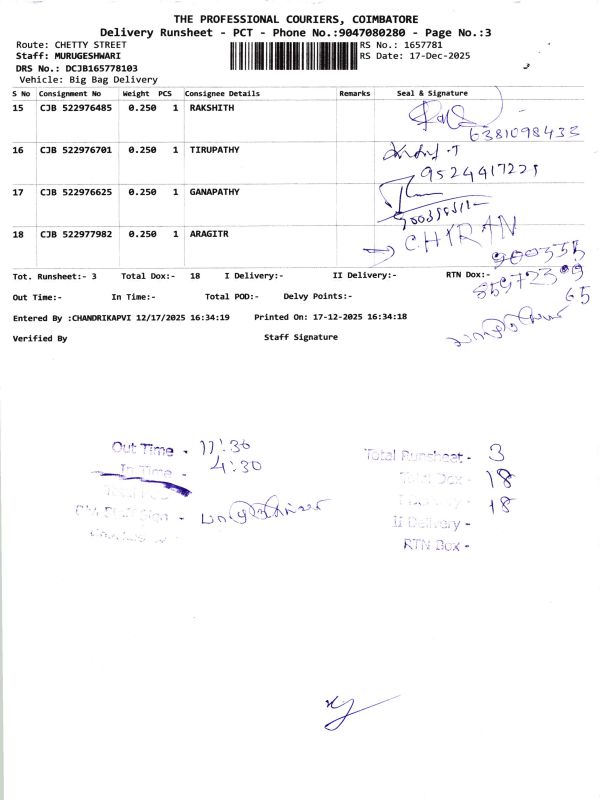 THE PROFESSIONAL COURIERS, COIMBATORE
Delivery Runsheet - PCT - Phone No.:9047080280 - Page No.:3
Route: CHETTY STREET RS No.: 1657781
Staff: MURUGESHWARI RS Date: 17-Dec-2025
DRS No.: DCJB165778103
Vehicle: Big Bag Delivery
S No Consignment No Weight PCS Consignee Details Remarks Seal & Signature
15 CJB 522976485 0.250 1 RAKSHITH
6381098433
16 CJB 522976701 0.250 1 TIRUPATHY
9524417221
17 CJB 522976625 0.250 1 GANAPATHY
18 CJB 522977982 0.250 1 ARAGITR CHIRAN
Tot. Runsheet:- 3 Total Dox:- 18 I Delivery:- II Delivery:- RTN Dox:-
65
Out Time:- In Time:- Total POD:- Delvy Points:-
Entered By :CHANDRIKAPVI 12/17/2025 16:34:19 Printed On: 17-12-2025 16:34:18
Verified By Staff Signature
Out Time - 11:30
In Time - 4:30
Total Runsheet - 3
Total Dox - 18
18
II Delivery -
RTN Dox -